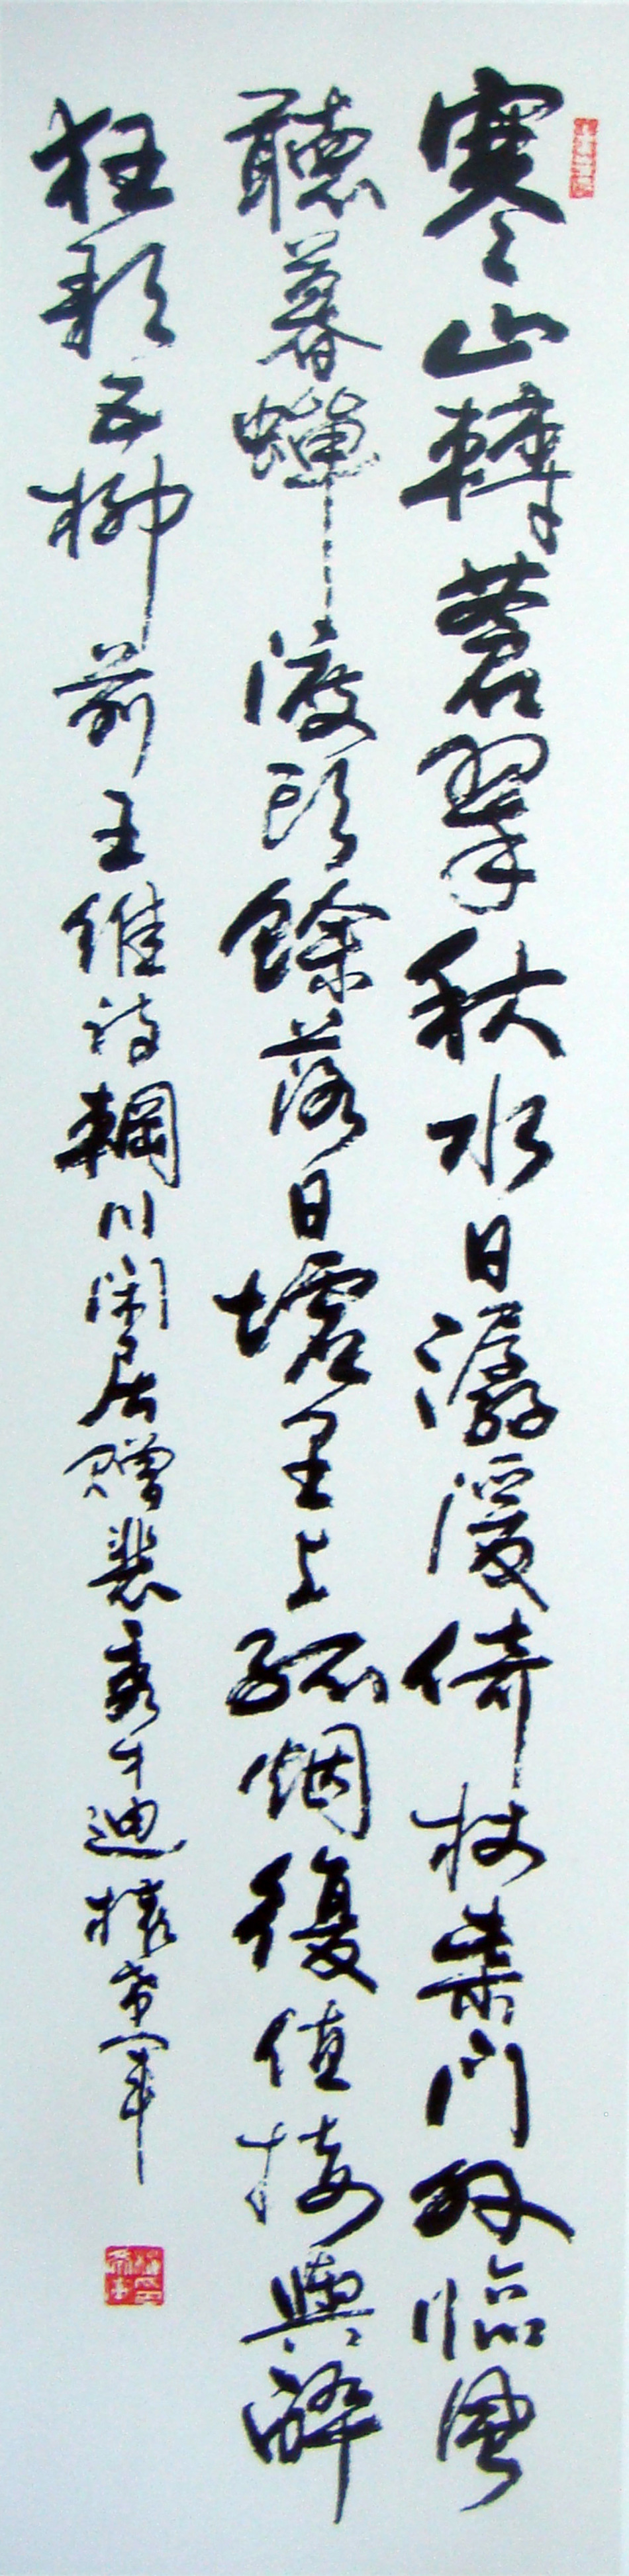 寒山轉蒼翠秋水日潺湲倚杖柴門外臨風
聽暮蟬渡頭餘落日墟里上孤烟復值接輿醉
狂歌五柳前王維诗輞川闲居赠裴秀才迪